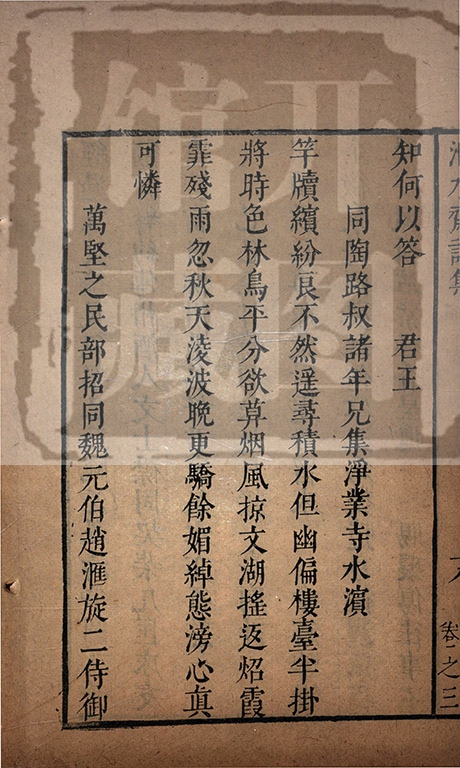 知何以答　　君王
同陶路叔諸年兄集淨業寺水濵
竿牘繽紛良不然遥尋積水但幽偏樓臺半掛
將時色林鳥平分欲莫烟風掠文湖搖返炤霞
霏殘雨忽秋天淩波晚更驕餘媚綽態滂心真
可憐
萬堅之民部招同魏元伯趙滙旋二侍御
卷之三